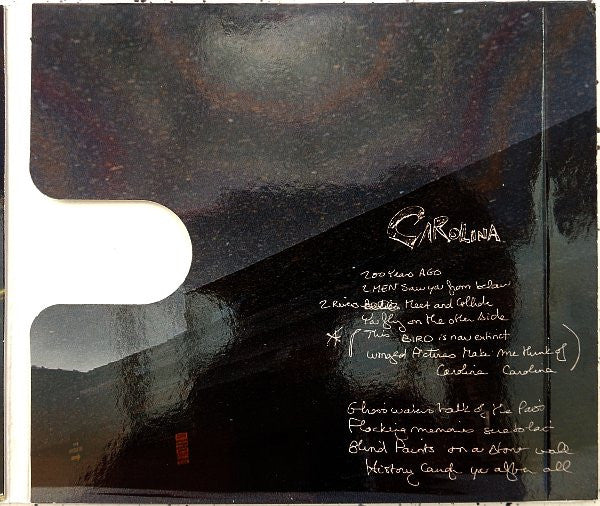 CAROLINA
200 Years AGO
2 MEN Saw ya from below
2 Rivers Meet and Collide
Ya fly on the other side
* ( This BIRD is now extinct
Winged Pictures Make Me think of )
Carolina Carolina
Ghost waters talk of the Past
Flocking memories
Blind Paints on a wall
History Caugh ya after all